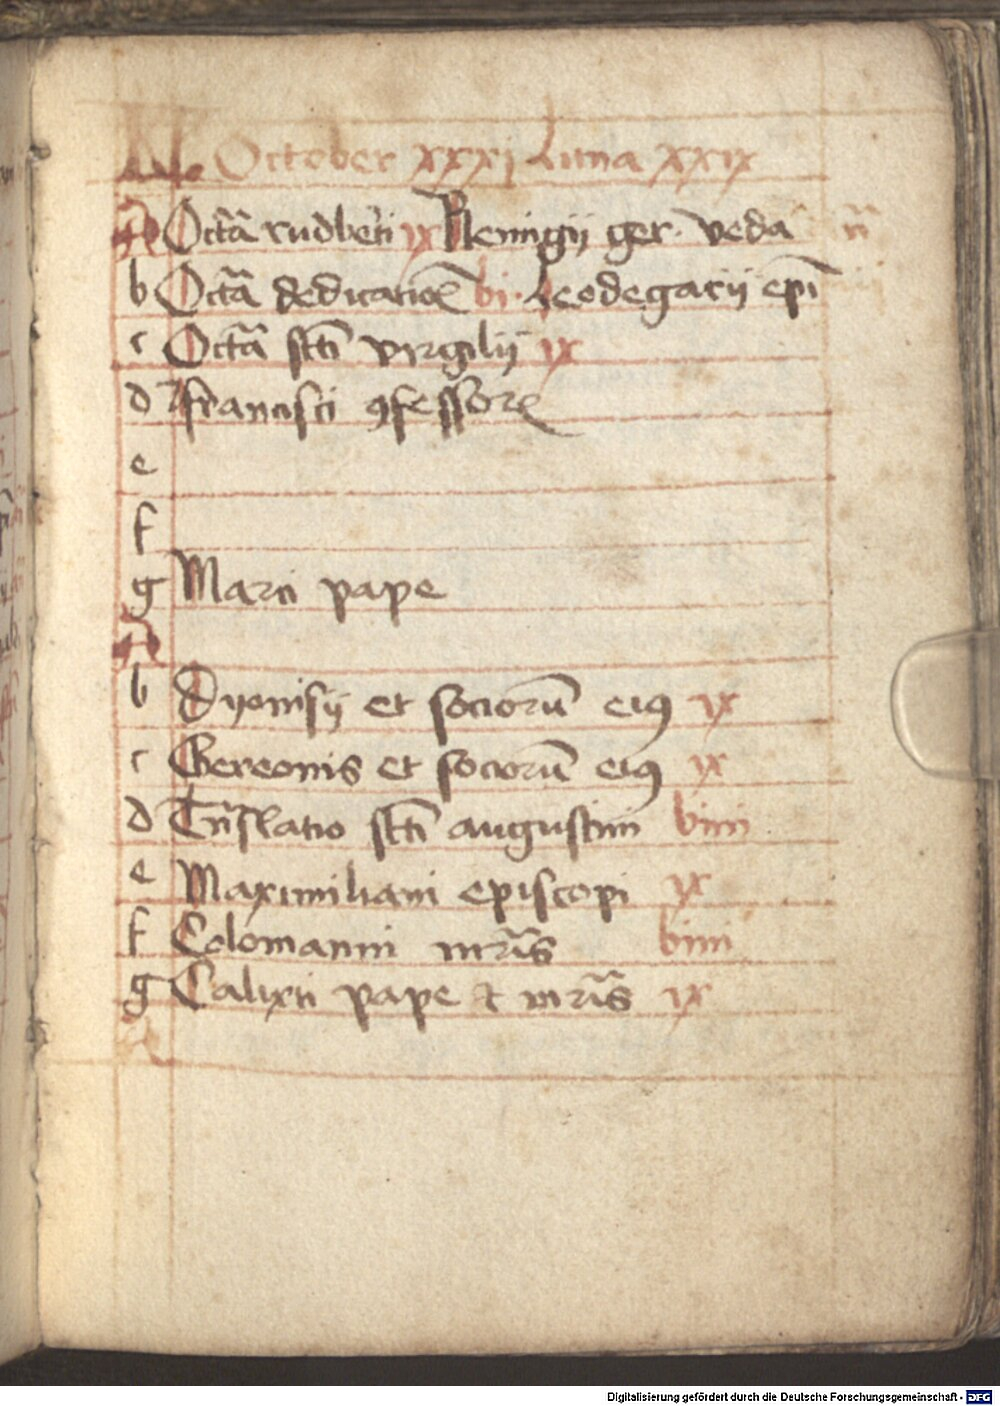 KL October xxxi Luna xxix
A Octã rudberti ix Remigii ger. veda
b Octã dedicatioꝝ bi. Leodegarij epĩ
c Octã sctĩ virgilij ix
d francisci ꝯfessorꝭ
e
f
g Marci pape
A
b Dyonisij et sociorũ eiꝰ ix
c Gereonis et sociorũ eiꝰ ix
d Trñslatio sctĩ augustini bini
e Maximiliani episcopi ix
f Colomanni mr̃is bini
g Calixti pape et mr̃is ix
A
Digitalisierung gefördert durch die Deutsche Forschungsgemeinschaft - DFG